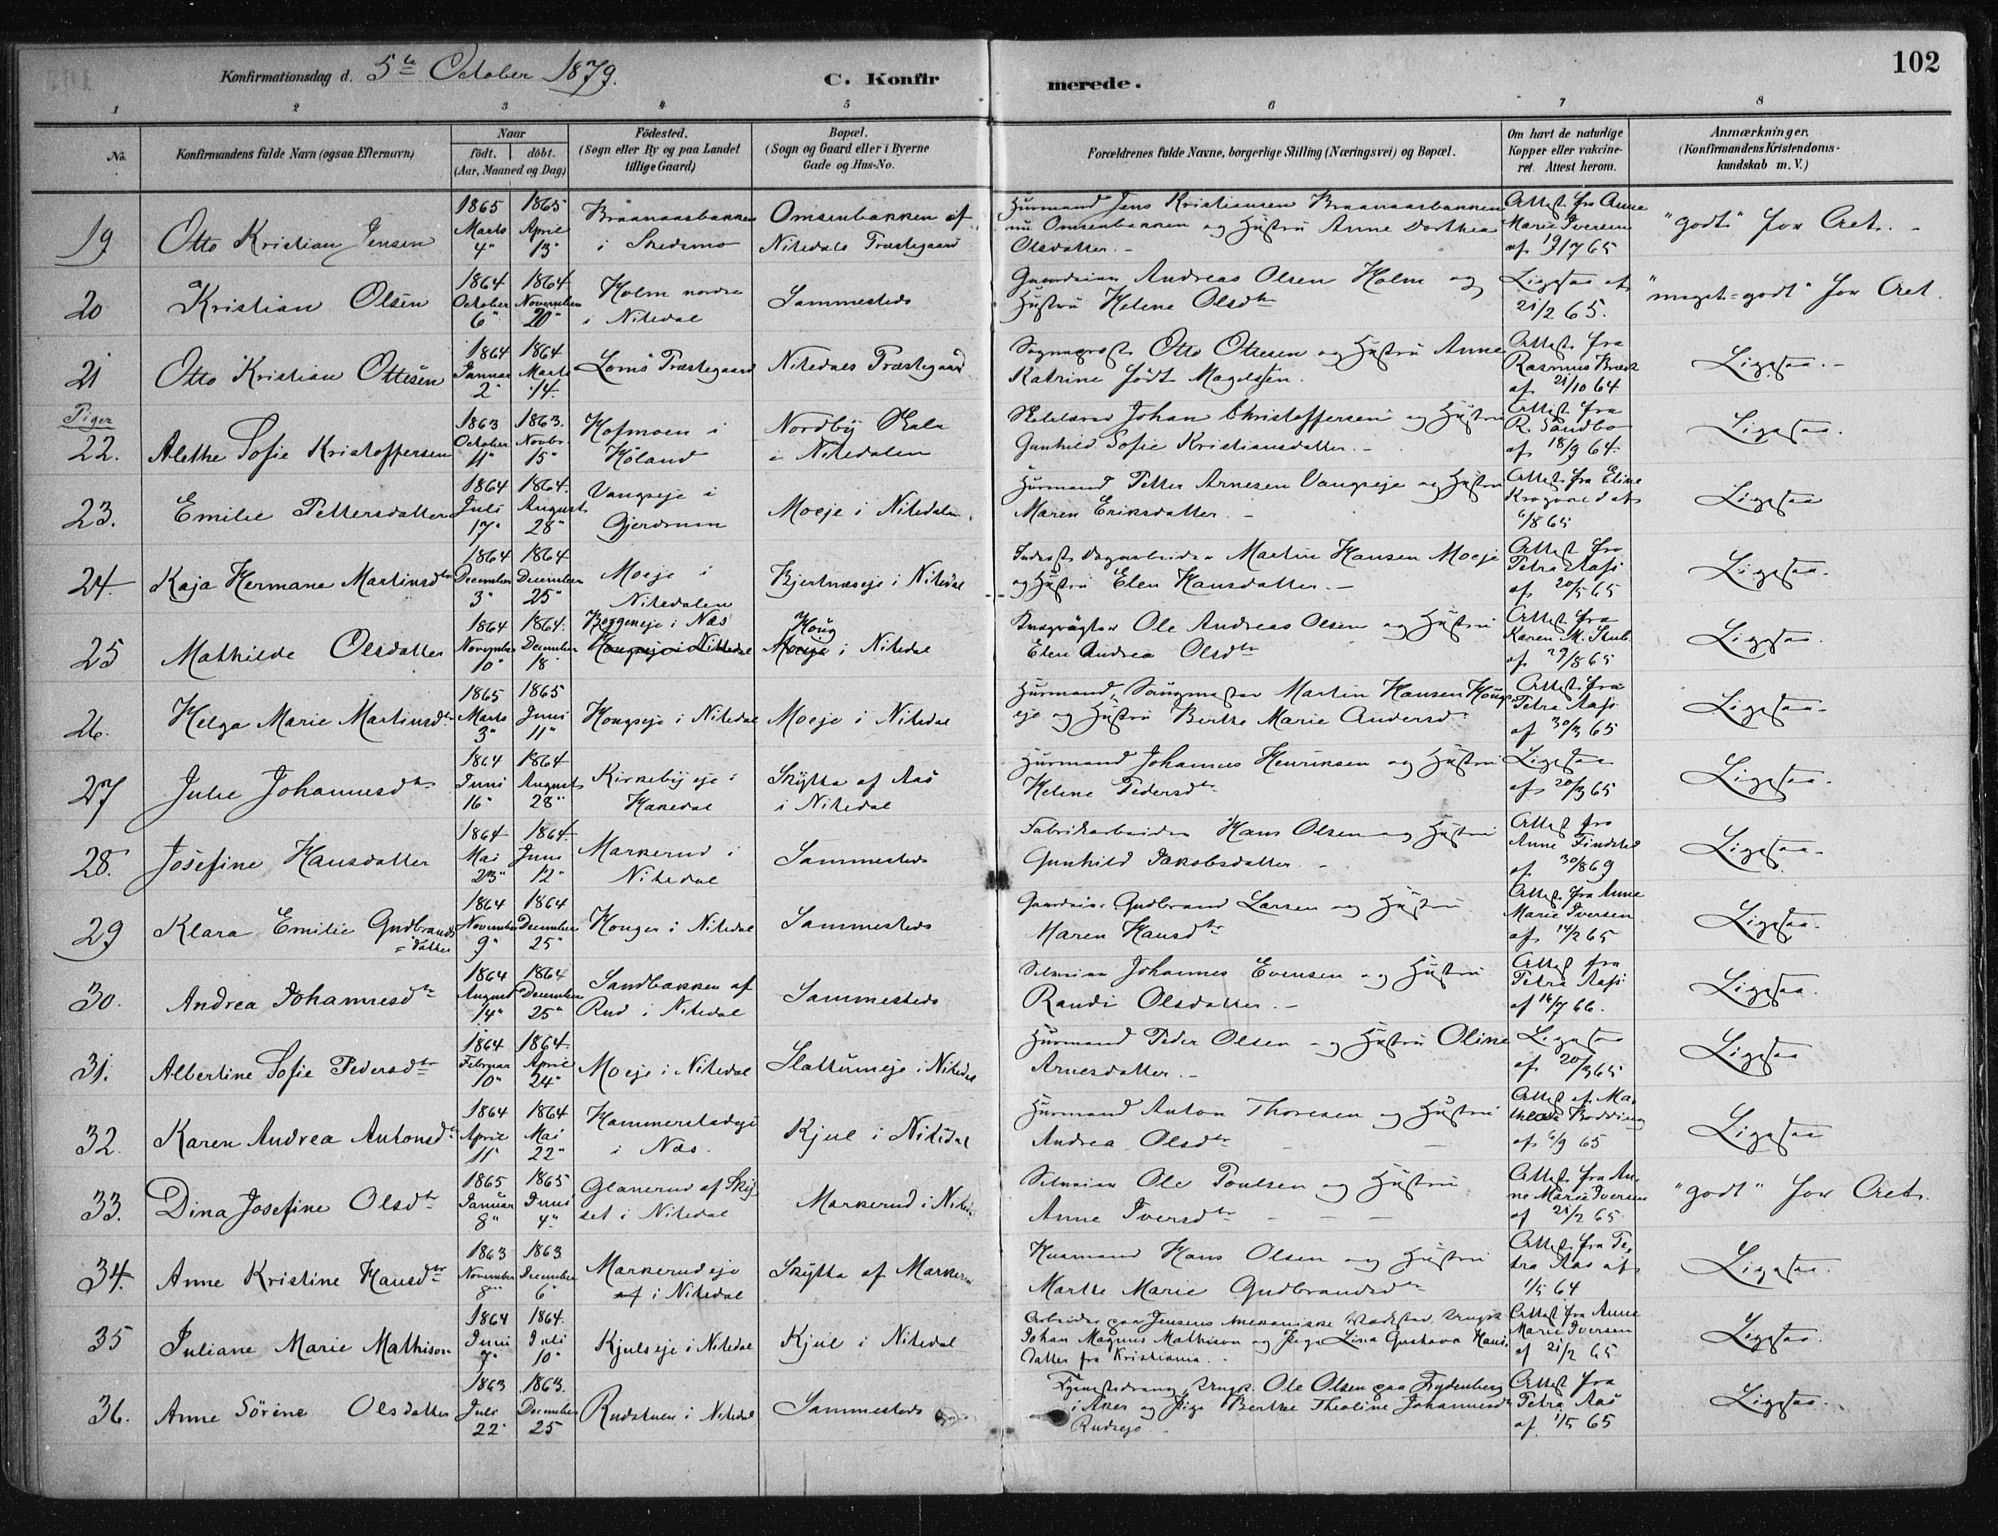 Konfirmationsdag d. 5te October 1879.
C. Konfirmerede.
102
1 2 3 4 5 6 7 8
No.
Konfirmandens fulde Navn (ogsaa Efternavn)
Naar
födt. döbt.
(Aar, Maaned og Dag)
Födested.
(Sogn eller By og paa Landet
tillige Gaard)
Bopæl.
(Sogn og Gaard eller i Byerne
Gade og Hus-No.
Forældrenes fulde Navne, borgerlige Stilling (Næringsvei) og Bopæl.
Om havt de naturlige
Kopper eller vakcine-
ret. Attest herom.
Anmærkninger.
(Konfirmandens Kristendoms-
kundskab m. V.)
19
Otto Kristian Jensen
1865 Marts 4"
1865 April 13"
Braanaasbakken
i Skedsmo
Omsenbakken af
Nitedals Præstegaard
Husmand Jens Kristiansen Braanaasbakken
nu Omsenbakken og Hustru Anne Dorthea
Olsdatter. -
Attest fra Anne
Marie Iversen
af 19/7 65
"godt" for Aret. -
20
Kristian Olsen
1864 October 6"
1864 November 20"
Holm nordre
i Nitedal
Sammesteds
Gaardeier Andreas Olsen Holm og
Hustru Helene Olsdtr
Ligesaa af
21/2 65.
"meget-godt" for Aret.
21
Otto Kristian Ottesen
1864 Januar 2"
1864 Marts 14.
Loms Præstegaard
Nitedals Præstegaard
Sogneprest Otto Ottesen og Hustru Anne
Katrine født Magelssen.
Attest fra
Rasmus
af 21/10 64
Ligesaa. -
Piger
22.
Alethe Sofie Kristoffersen
1863 October 11"
1863. Novbr 15"
Hofmoen i
Høland
Nordby Skole
i Nitedalen
Skolelærer Johan Christoffersen og Hustru
Gunhild Sofie Kristiansdatter. -
Attest fra
R. Sandbo
af 18/9 64.
Ligesaa.
23.
Emilie Pettersdatter
1864 Juli 17"
1864. August 28"
Vangseje i
Gjerdrum
Moeje i Nitedalen.
Husmand Petter Arnesen Vangseje og Hustru
Maren Eriksdatter. -
Attest fra Eline
6/8 65
Ligesaa
24.
Kaja Hermane Martinsdtr
1864 December 3"
1864 December 25"
Moeje i
Nitedalen
Kjertnæseje i Nitedal
Inderst Dagarbeider Martin Hansen Moeje
og Hustru Elen Hansdatter. -
Attest fra
Petra Aas
af 20/5 65
Ligesaa.
25
Mathilde Olsdatter
1864 November 10"
1864. December 18"
Byggeneje i Næs
Hougseje i Nittedal
Houg
Moeje i Nitedal
Ole Andreas Olsen og Hustru
Elen Andrea Olsdtr
Attest fra
Karen M. Stub
af 29/8 65
Ligesaa.
26.
Helga Marie Martinsdtr
1865 Marts 3"
1865 Juni 11"
Hougseje i Nitedal
Moeje i Nitedal
Husmand, Saugmester Martin Hansen Hougs-
eje og Hustru Berthe Marie Andersd
Attest fra
Petra Aas
af 30/3 65
Ligesaa.
27
Julie Johannesdtr
1864 Juni 16"
1864 August 28"
Kirkebyeje i
Hakedal
Skytta af Aas
i Nitedal
Husmand Johannes Henriksen og Hustru
Helene Pedersdtr
Ligesaa
af 20/3 65
Ligesaa.
28.
Josefine Hansdatter
1864 Mai 23"
1864. Juni 12"
Markerud i
Nitedal
Sammesteds
Fabrikarbeider Hans Olsen og Hustru
Gunhild Jakobsdatter. -
Attest fra
Anne Findstad
af 30/8 69
Ligesaa.
29
Klara Emilie Gudbrands=
=datter
1864 November 9"
1864 December 25"
Houger i Nitedal
Sammesteds
Gaardeier Gudbrand Larsen og Hustru
Maren Hansdtr
Attest fra Anne
Marie Iversen
af 14/2 65
Ligesaa.
30.
Andrea Johannesdtr
1864 August 14"
1864 December 25"
Sandbakken af
Rud i Nitedal
Sammesteds
Selveier Johannes Evensen og Hustru
Randi Olsdatter. -
Attest fra
Petra Aas
af 16/7 66.
Ligesaa.
31.
Albertine Sofie Pedersdtr
1864 Februar 10"
1864. April 24"
Moeje i Nitedal
Slattumeje i Nitedal
Husmand Peder Olsen og Hustru Oline
Arnesdatter. -
Ligesaa
af 20/3 65
Ligesaa
32.
Karen Andrea Antonsdtr
1864 April 11"
1864 Mai 22"
Hammerstadeje
i Næs.
Kjul i Nitedal
Husmand Anton Thoresen og Hustru
Andrea Olsdtr
Attest af Ma-
af 6/9 65
Ligesaa
33.
Dina Josefine Olsdtr
1865 Januar 8"
1865 Juni 4"
Glanerud af Skyt-
set i Nitedal
Markerud i Nitedal
Selveier Ole Poulsen og Hustru
Anne Iversdtr
Attest fra An-
ne Marie Iversen
af 21/2 65
"godt" for Aret.
34.
Anne Kristine Hansdtr
1863 November 8"
1863 December 6"
Markerudeje
af i Nitedal
Skytta af Markerud
Husmand Hans Olsen og Hustru
Marthe Marie Gudbrandsdtr
Attest fra Pe-
tra Aas af
1/5 64
Ligesaa.
35
Juliane Marie Mathison
1864 Juni 7"
1864. Juli 10"
Kjulseje i Nitedal
Kjul i Nitedal
Arbeider paa Jensens mekaniske Værksted, Ungk.
Johan Magnus Mathison og Pige Lina Gustava Hans-
datter fra Kristiania.
Attest fra Anne
Marie Iversen
af 21/2 65
Ligesaa.
36.
Anne Sörine Olsdatter
1863 Juli 22"
1863. December 25
Rudstuen i Nitedal
Sammesteds
Tjenestedreng, Ungk. Ole Olsen paa Frydenberg
i Aker og Pige Berthe Theoline Johannesdtr
Rudseje
Attest fra
Petra Aas
af 1/5 65
Ligesaa.